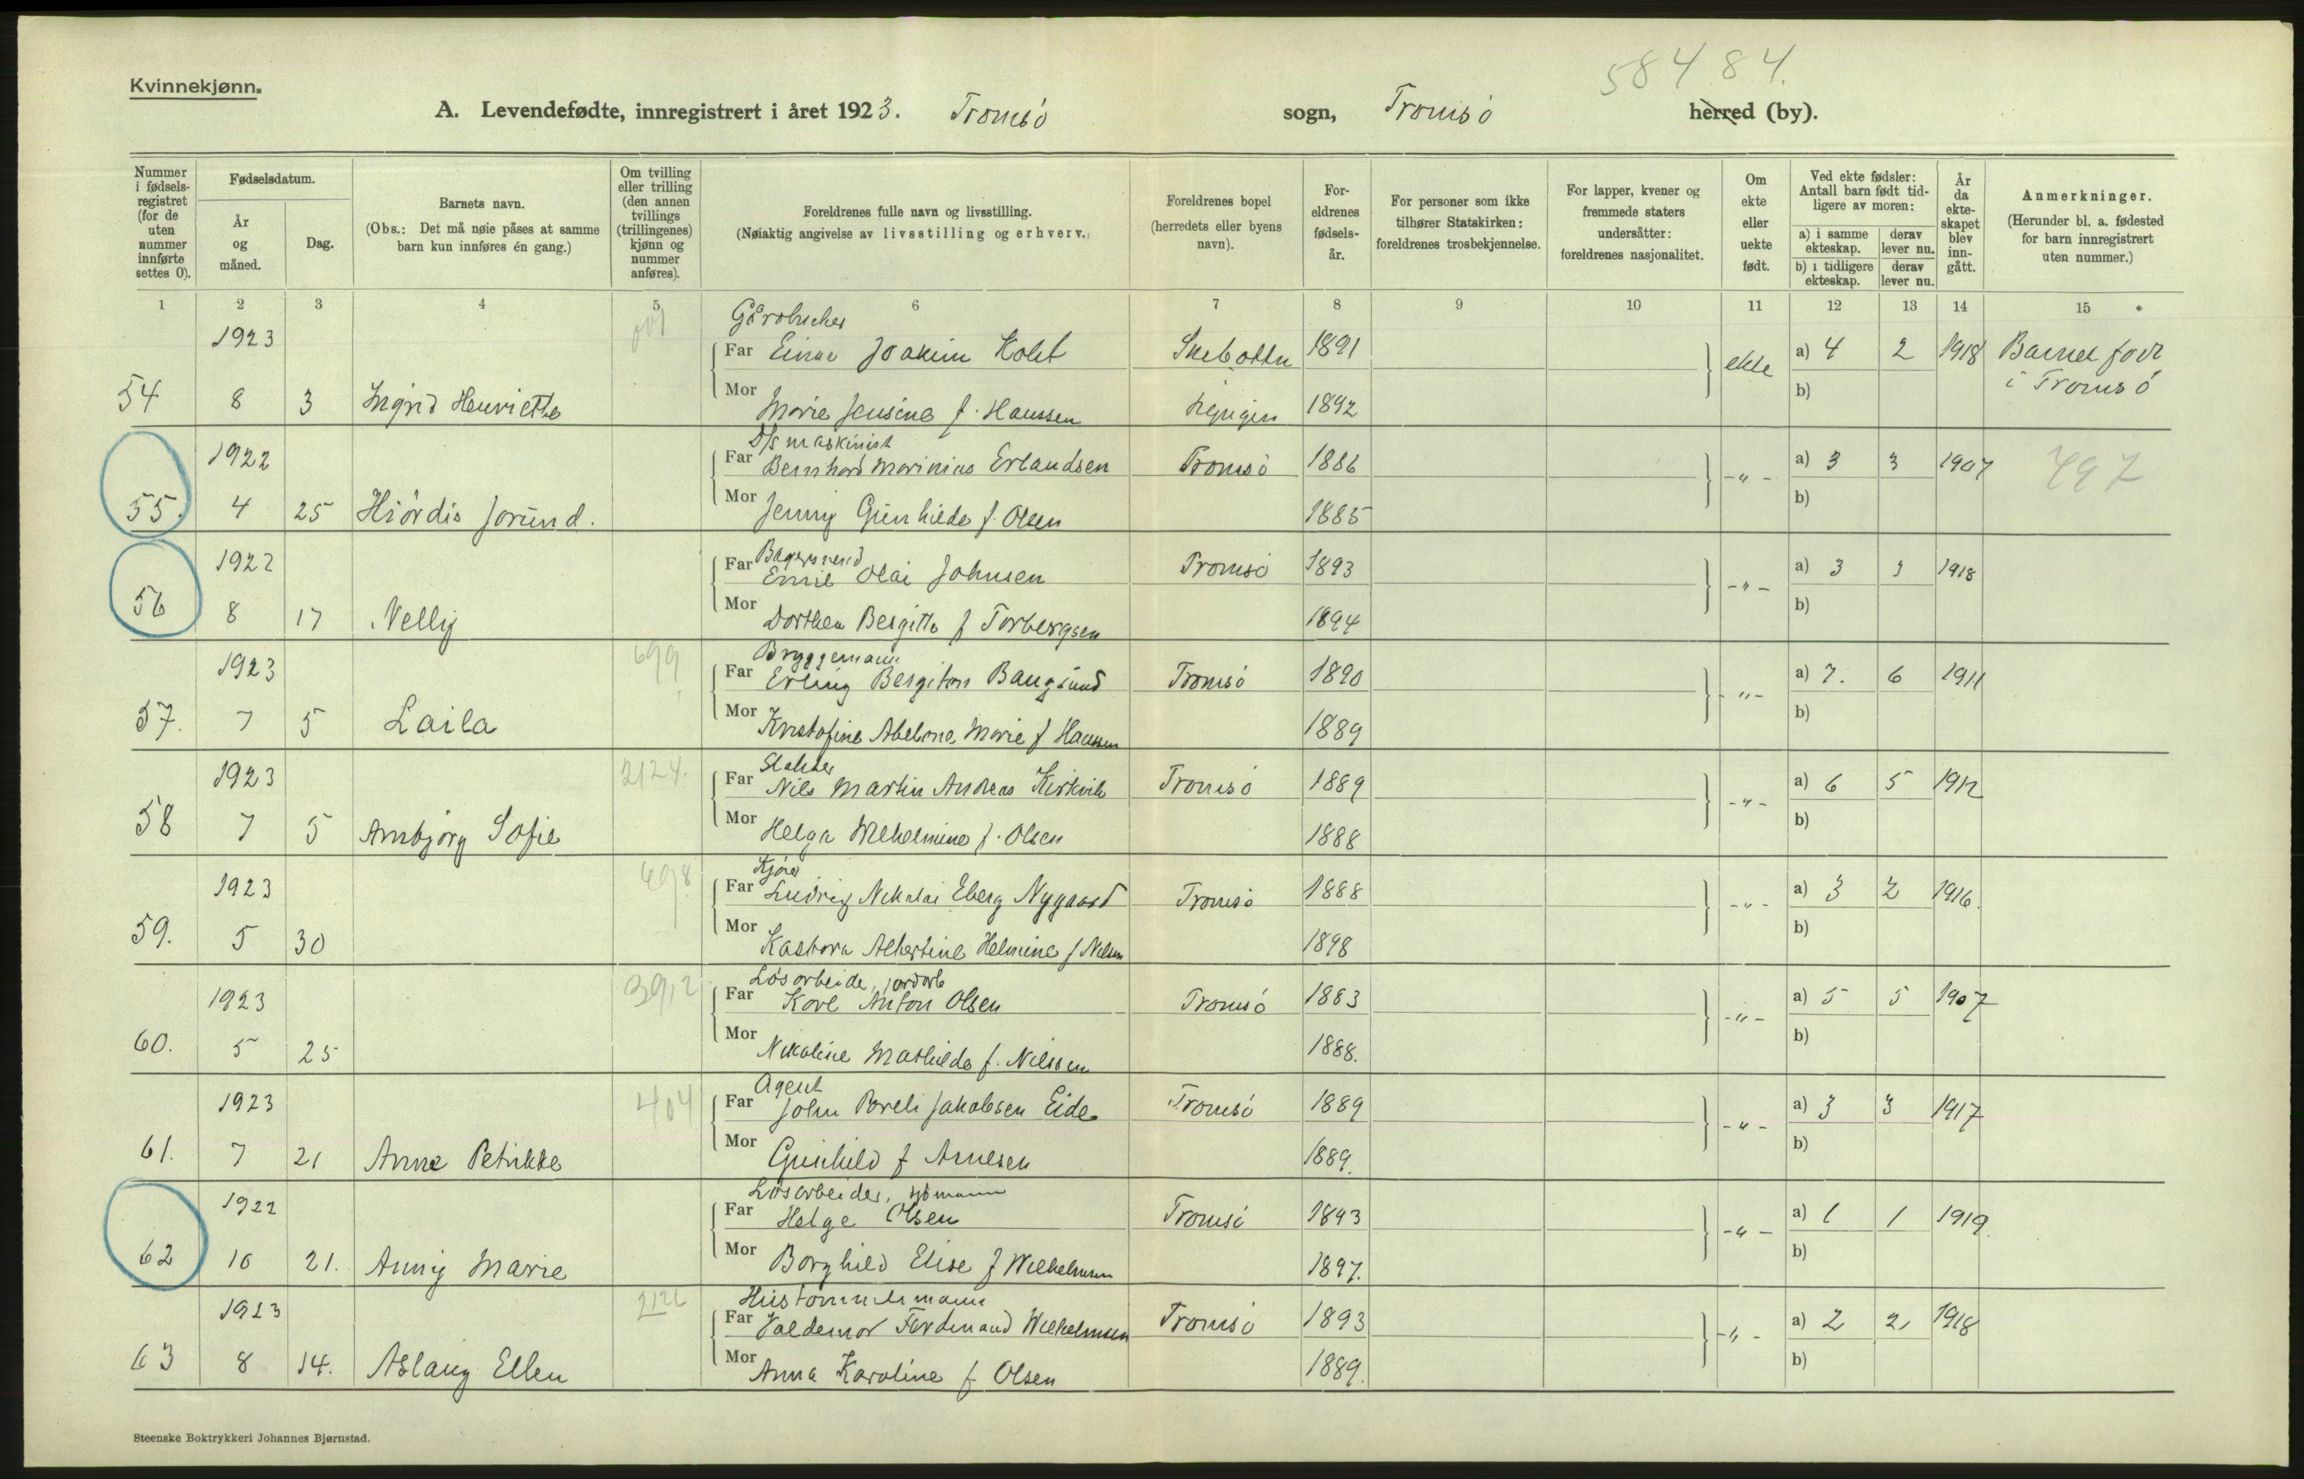 58484.
Kvinnekjønn.
A. Levendefødte, innregistrert i året 1923. Tromsö sogn, Tromsö herred (by).
Nummer i fødselsregistret (for de uten nummer innførte settes 0).
Fødselsdatum.
År og måned.
Dag.
Barnets navn.
(Obs.: Det må nøie påses at samme barn kun innføres én gang.)
Om tvilling eller trilling (den annen tvillings (trillingenes) kjønn og nummer anføres).
Foreldrenes fulle navn og livsstilling.
(Nøiaktig angivelse av livsstilling og erhverv.)
Foreldrenes bopel (herredets eller byens navn).
Foreldrenes fødselsår.
For personer som ikke tilhører Statskirken: foreldrenes trosbekjennelse.
For lapper, kvener og fremmede staters undersåtter: foreldrenes nasjonalitet.
Om ekte eller uekte født.
Ved ekte fødsler: Antall barn født tidligere av moren:
a) i samme ekteskap. derav lever nu.
b) i tidligere ekteskap. derav lever nu.
År da ekteskapet blev inngått.
Anmerkninger.
(Herunder bl. a. fødested for barn innregistrert uten nummer.)
1 2 3 4 5 6 7 8 9 10 11 12 13 14 15
Gårdbruker
1923 Far Einar Joakim Holst Skibottn 1891 ekte a) 4 2 1918 Barnet född
54 8 3 Ingrid Henriette Mor Marie Jensine f. Hanssen Lyngen 1892 b) i Tromsö
D/s maskinist
1922 Far Bernhard Marinius Erlandsen Tromsö 1886 -"- a) 3 3 1907 797
55. 4 25 Hiördis Jorund. Mor Jenny Gunhilde f. Olsen 1885 b)
Bagersvend
1922 Far Emil Olai Johnsen Tromsö 1893 -"- a) 3 3 1918
56 8 17 Nelly Mor Dorthea Bergitte f Torbergsen 1894 b)
699 Bryggemann
1923 Far Erling Bergiton Baugsund Tromsö 1890 -"- a) 7. 6 1911
57. 7 5 Laila Mor Kristofine Abelone Marie f Hanssen 1889 b)
2124. Slakter
1923 Far Nils Martin Andreas Kirkvik Tromsö 1889 -"- a) 6 5 1912
58 7 5 Arnbjörg Sofie Mor Helga Wilhelmine f. Olsen 1888 b)
698 Kjörer
1923 Far Ludvig Nikolai Eberg Nygaard Tromsö 1888 -"- a) 3 2 1916.
59. 5 30 Mor Kaspara Albertine Helmine f Nilsen 1898 b)
3912 Lösarbeider, jordarb
1923 Far Karl Anton Olsen Tromsö 1883 -"- a) 5 5 1907
60. 5 25 Mor Nikoline Mathilde f. Nilssen 1888. b)
404 Agent
1923 Far John Pareli Jakobsen Eide Tromsö 1889 -"- a) 3 3 1917
61. 7 21 Anna Petrikke Mor Gunhild f Arnesen 1889. b)
Lösarbeider,
1922 Far Helge Olsen Tromsö 1893 -"- a) 1 1 1919.
62 10 21. Anny Marie Mor Borghild Elise f Wilhelmsen 1897. b)
2126 Hustömmermann
1923 Far Valdemar Ferdinand Wilhelmsen Tromsö 1893 -"- a) 2 2 1918
63 8 14. Aslaug Ellen Mor Anna Karoline f. Olsen 1889. b)
Steenske Boktrykkeri Johannes Bjørnstad.